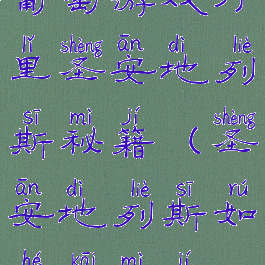 lǐ shèng ān dì liè
里圣安地列
sī mì jí shèng
斯秘籍(圣
ān dì liè sī rú
安地列斯如
hé kāi mì jí